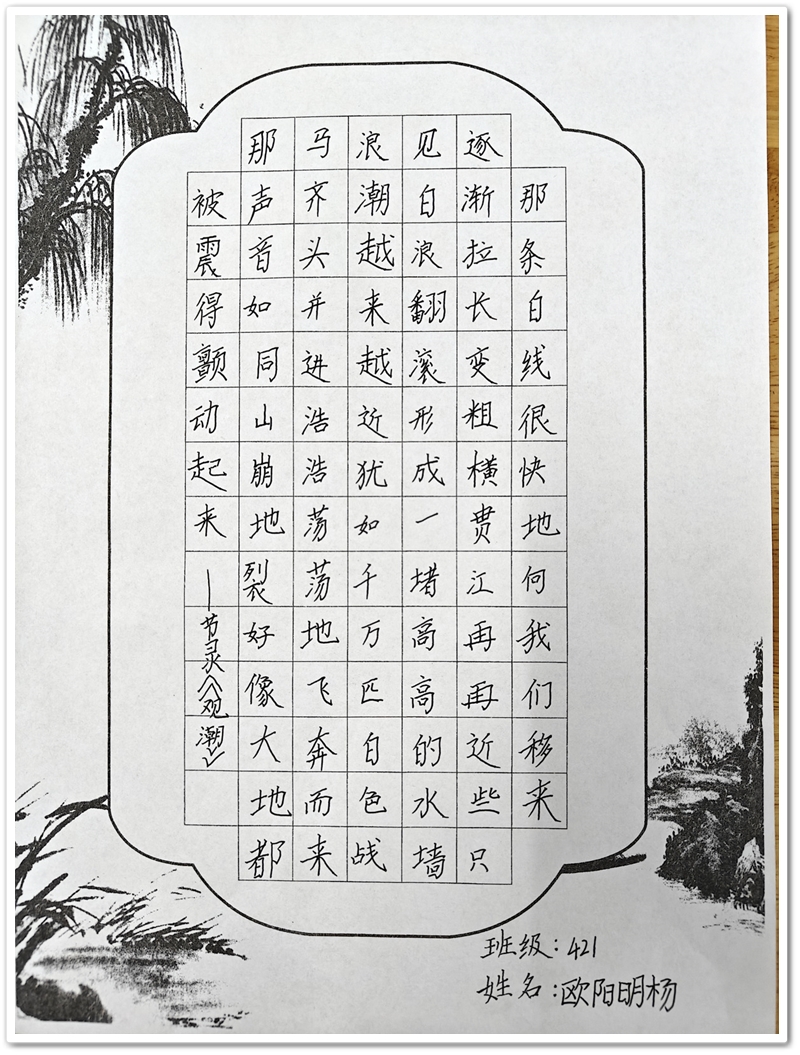 那条白线很快地何我们移来
逐渐拉长变粗横贯江再再近些只
见白浪翻滚形成一堵高高的水墙
浪潮越来越近犹如千万匹白色战
马齐头并进浩浩荡荡地飞奔而来
那声音如同山崩地裂好像大地都
被震得颤动起来—节录《观潮》
班级:421
姓名:欧阳明杨